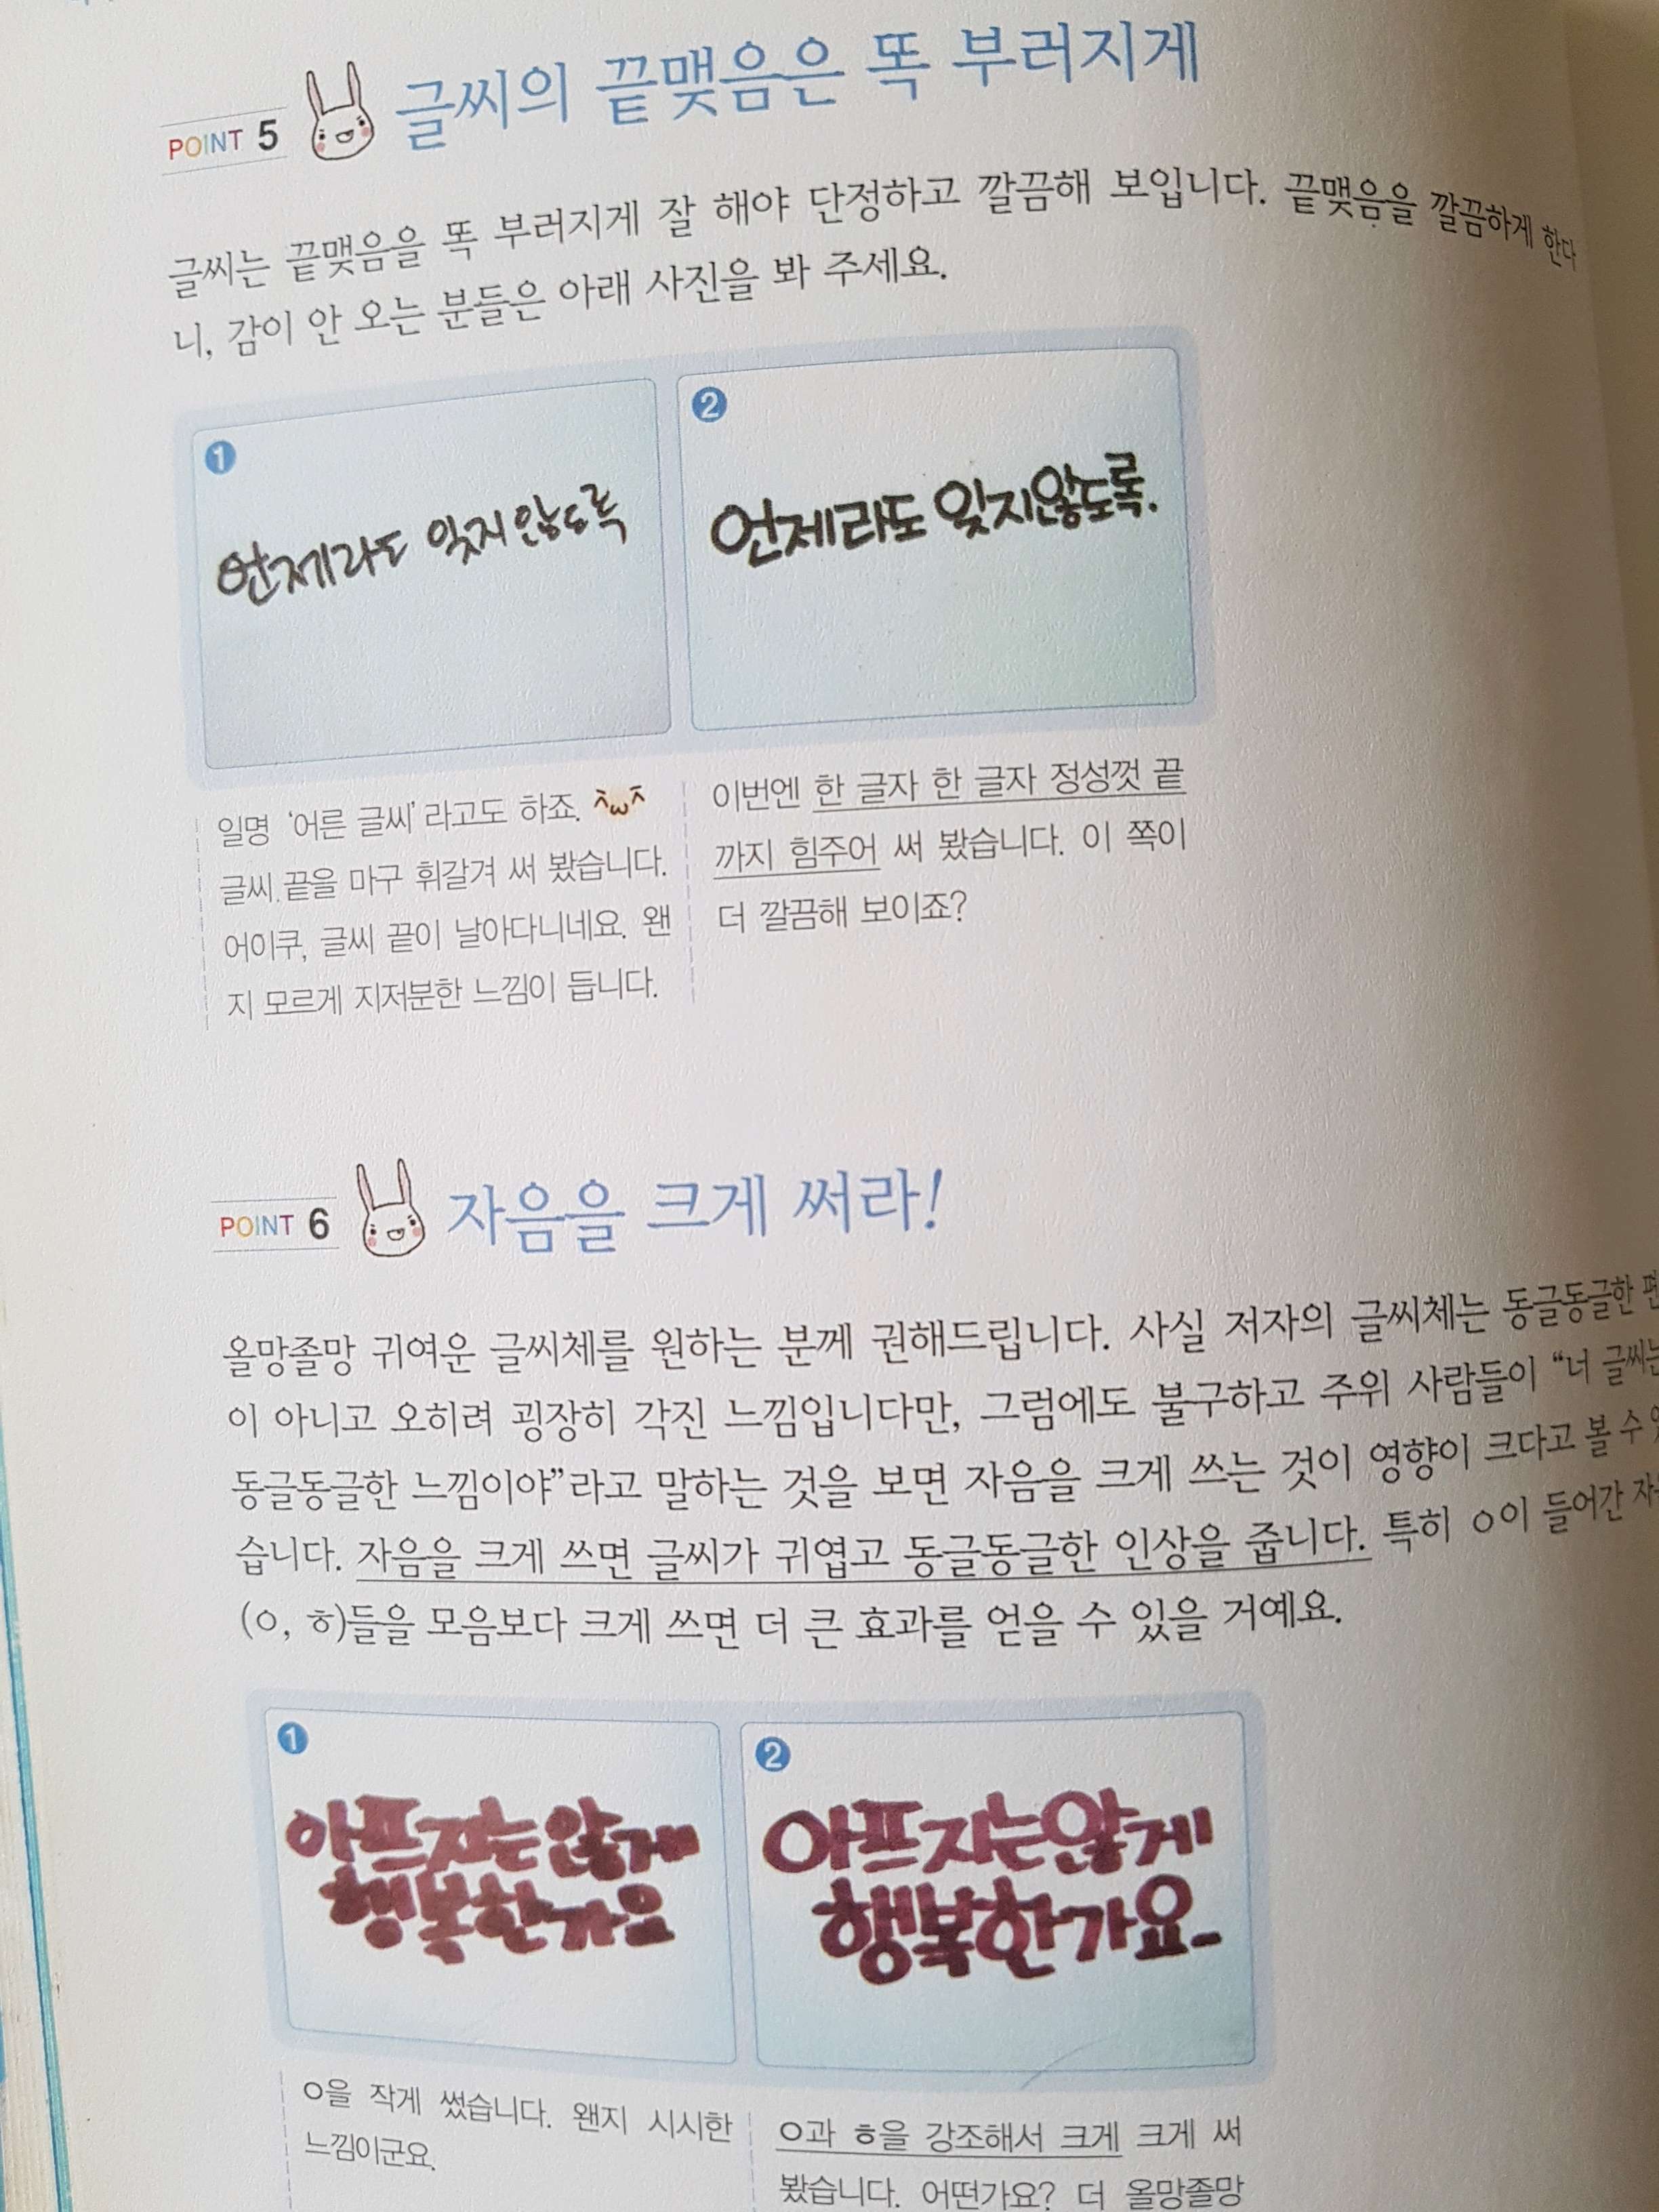 POINT 5 글씨의 끝맺음은 똑 부러지게
글씨는 끝맺음을 똑 부러지게 잘 해야 단정하고 깔끔해 보입니다. 끝맺음을 깔끔하게 한다
니, 감이 안 오는 분들은 아래 사진을 봐 주세요.
1
언제라도 잊지않도록
2
언제라도 잊지않도록.
일명 ‘어른 글씨’라고도 하죠. ㅊωㅊ
글씨 끝을 마구 휘갈겨 써 봤습니다.
어이쿠, 글씨 끝이 날아다니네요. 왠
지 모르게 지저분한 느낌이 듭니다.
이번엔 한 글자 한 글자 정성껏 끝
까지 힘주어 써 봤습니다. 이 쪽이
더 깔끔해 보이죠?
POINT 6 자음을 크게 써라!
올망졸망 귀여운 글씨체를 원하는 분께 권해드립니다. 사실 저자의 글씨체는 동글동글한 편
이 아니고 오히려 굉장히 각진 느낌입니다만, 그럼에도 불구하고 주위 사람들이 “너 글씨는
동글동글한 느낌이야”라고 말하는 것을 보면 자음을 크게 쓰는 것이 영향이 크다고 볼 수
습니다. 자음을 크게 쓰면 글씨가 귀엽고 동글동글한 인상을 줍니다. 특히 ㅇ이 들어간
(ㅇ, ㅎ)들을 모음보다 크게 쓰면 더 큰 효과를 얻을 수 있을 거예요.
1
아프지는않게
행복한가요
2
아프지는않게
행복한가요-
ㅇ을 작게 썼습니다. 왠지 시시한
느낌이군요.
ㅇ과 ㅎ을 강조해서 크게 크게 써
봤습니다. 어떤가요? 더 올망졸망